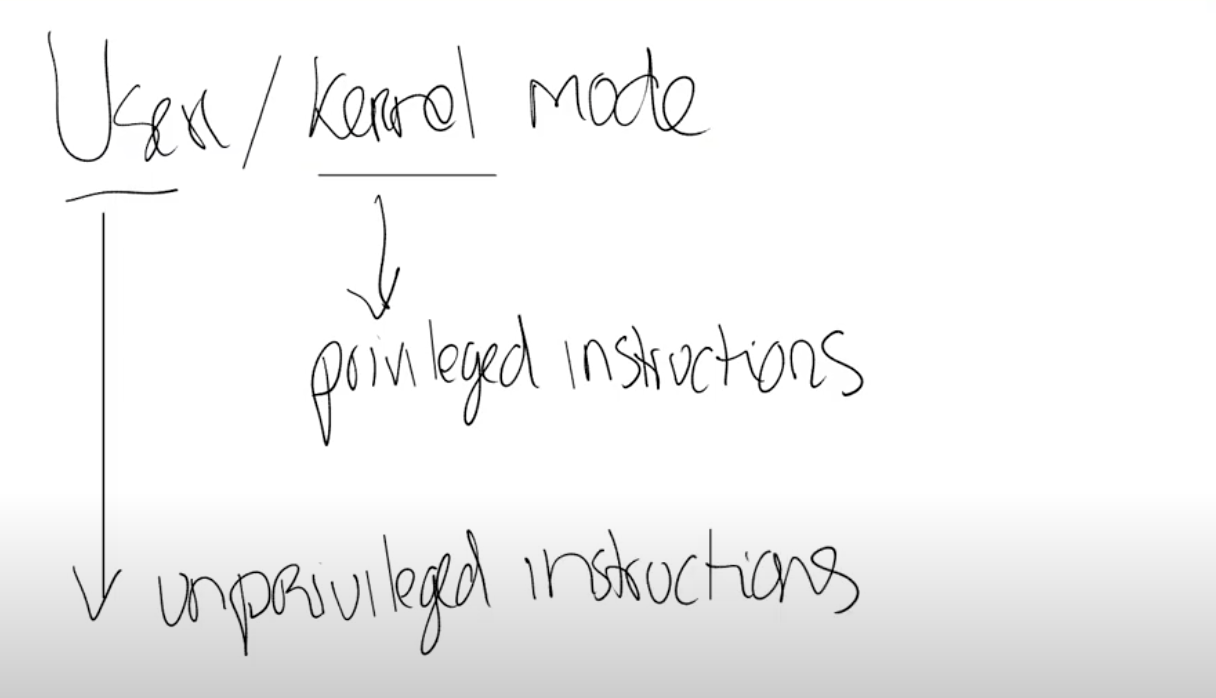 User/kernel mode
privileged instructions
unprivileged instructions